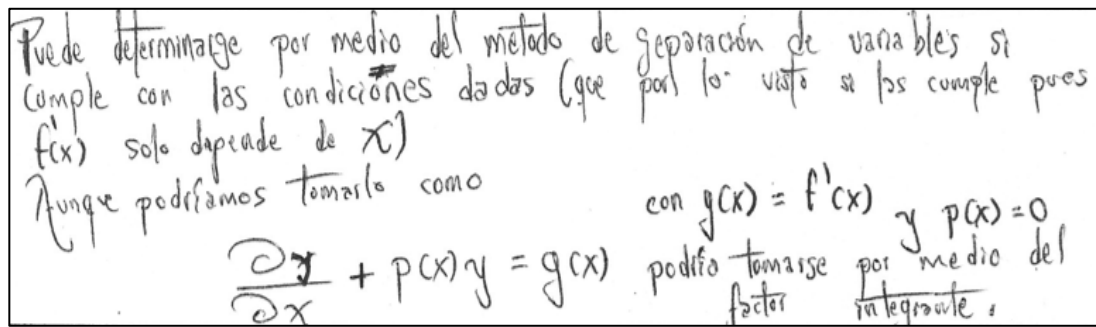 Puede determinarse por medio del método de separación de variables si
cumple con las condiciones dadas (que por lo visto si las cumple pues
f'(x) solo depende de x)
Aunque podríamos tomarlo como
con g(x) = f'(x) y p(x) = 0
∂y/∂x + p(x)y = g(x) podría tomarse por medio del
factor integrante.